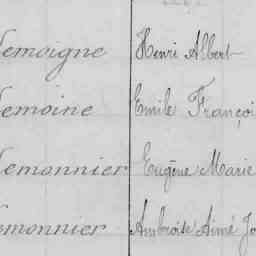 Lemoigne Henri Albert
Lemoine Emile Françoi
Lemonnier Eugène Marie
Lemonnier Ambroise Aimé Jo